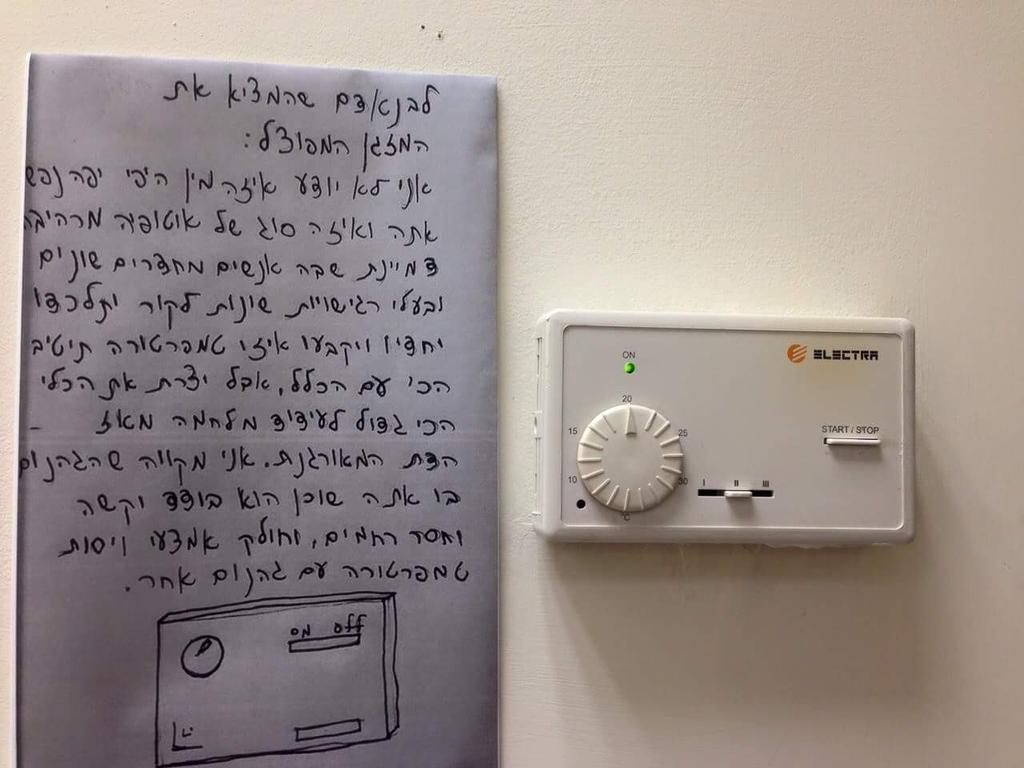 לבנאדם שהמציא את
המזגן המפוצל:
אני לא יודע איזה מין היפי יפה נפש
אתה ואיזה סוג של אוטופיה מרהיבה
דמיינת שבה אנשים מחדרים שונים
ובעלי רגישויות שונות לקור יתלכדו
יחדיו ויקבעו איזו טמפרטורה תיטיב
הכי עם הכלל, אבל יצרת את הכלי
הכי גדול לעידוד מלחמה מאז
הדת המאורגנת. אני מקווה שהגהנום
בו אתה שוכן הוא בודד וקשה
וחסר רחמים, וחולק אמצעי ויסות
טמפרטורה עם גהנום אחר.
on off
ELECTRA
ON
20
15 25
START / STOP
10 30
I II III
°C